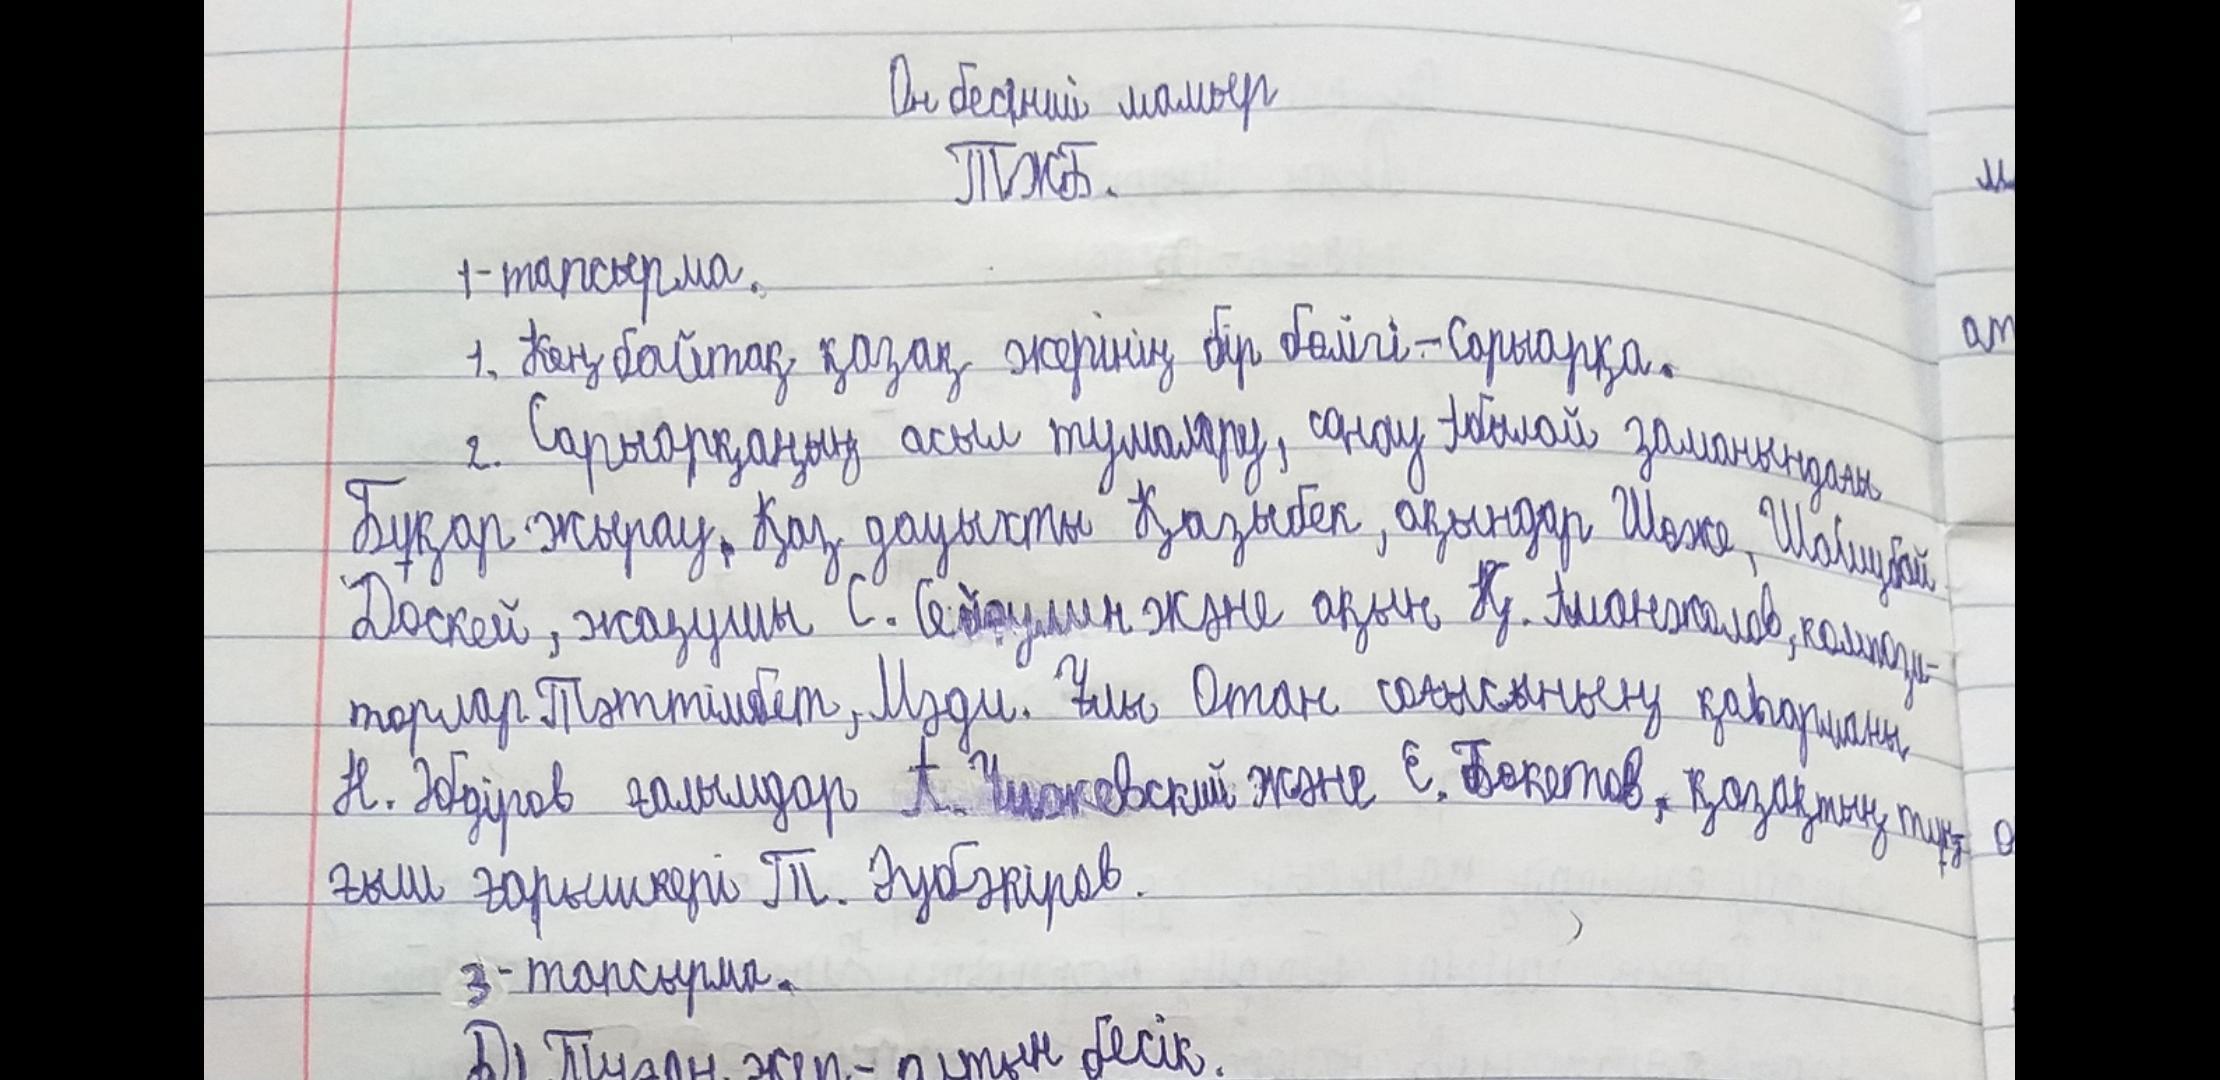 Он бесінші мамыр
ТЖБ.
1-тапсырма.
1. Кең байтақ қазақ жерінің бір бөлігі - Сарыарқа.
2. Сарыарқаның асыл тумалары, сонау Абылай заманындағы
Бұқар жырау, Қаз дауысты Қазыбек, ақындар Шөже, Шашубай
Доскей, жазушы С. Сейфулин және ақын Қ. Аманжалов, компози-
торлар Тәттімбет, Мәди. Ұлы Отан соғысының қаһарманы
Н. Әбдіров ғалымдар А. Чижевский және Е. Бөкетов, қазақтың тұң-
ғыш ғарышкері Т. Әубәкіров.
3-тапсырма.
Б) Туған жер - алтын бесік.
м
ат